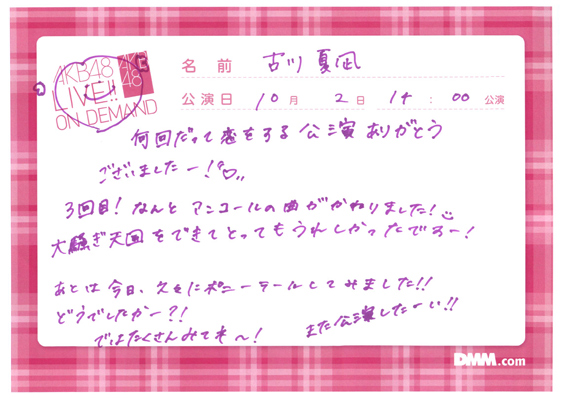 AKB48
LIVE!!
ON DEMAND
AKB
48
名前 古川 夏凪
公演日 10月 2日 14:00 公演
何回だって恋をする公演ありがとう
ございましたー!
3回目!なんとアンコールの曲がかわりました!
大騒ぎ天国をできてとってもうれしかったですー!
あとは今日、久々にポニーテールしてみました!!
どうでしたかー?!
ではたくさんみてネ〜!
また公演したーい!!
DMM.com